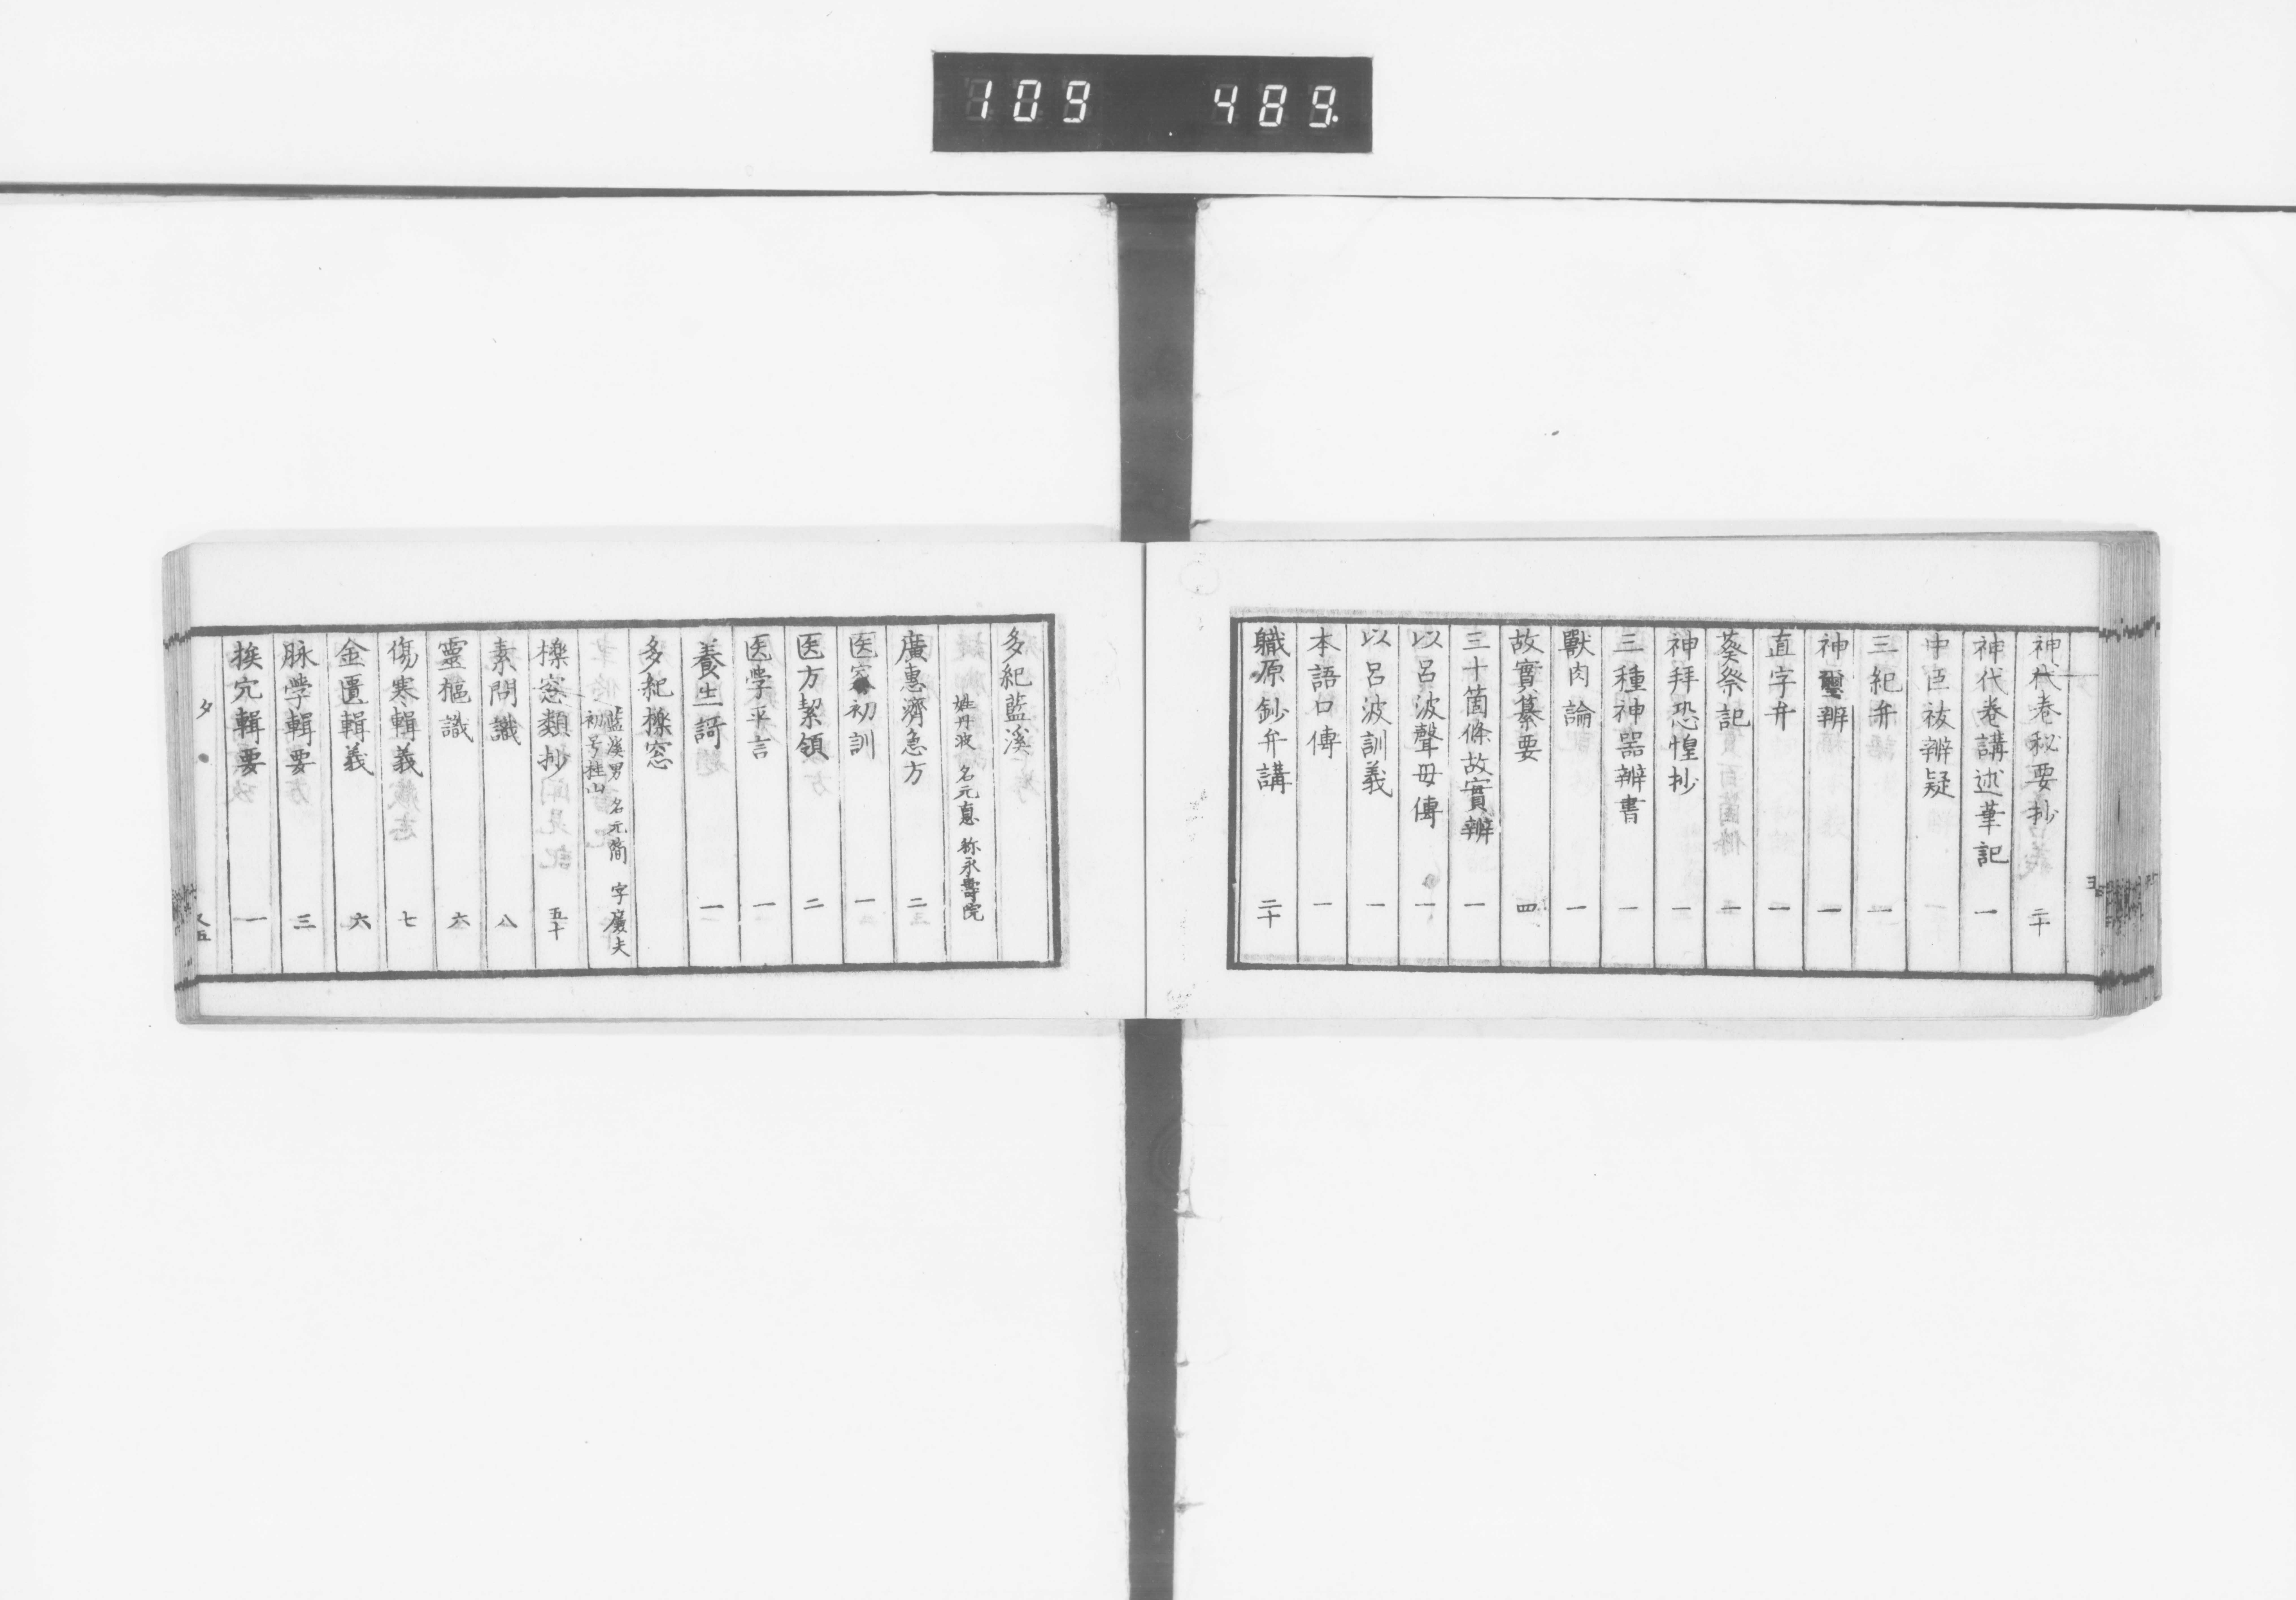 109 489.
神代卷秘要抄 二十
神代卷講述筆記 一
中臣祓辨疑 一
三紀弁 一
神璽辨 一
直字弁 一
葵祭記 一
神拜恐惶抄 一
三種神器辨書 一
獸肉論 一
故實纂要 四
三十箇條故實辨 一
以呂波聲母傳 一
以呂波訓義 一
本語口傳 一
職原鈔弁講 二十
多紀藍溪
姓丹波 名元悳 称永壽院
廣惠濟急方 二
医家初訓 一
医方絜領 二
医学平言 一
養生謌 一
多紀櫟窓
藍溪男 名元簡 字廣夫
初号桂山
櫟窓類抄 五十
素問識 八
靈樞識 六
傷寒輯義 七
金匱輯義 六
脉学輯要 三
挨穴輯要 一
タ 五